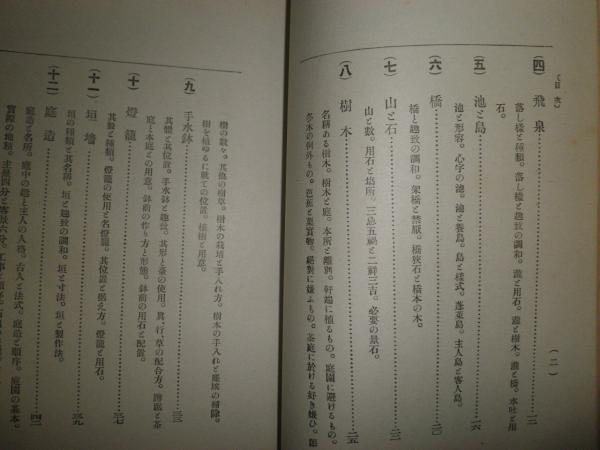 （目次）
（二）
（四）飛泉……一二
落し樣と種類。落し樣と趣致の調和。瀧と用石。瀧と樹木。瀧と橋。水吐と用
石。
（五）池と島……一六
池と形容。心字の池。池と養島。島と樣式。蓬萊島。主人島と客人島。
（六）橋……二〇
橋と趣致の調和。架橋と禁厭。橋狹石と橋本の木。
（七）山と石……二三
山と數。用石と塲所。三忌五禍と二鮮三吉。必要の景石。
（八）樹木……二五
名稱ある樹木。樹木と庭。本所と離別。軒端に植るもの。庭園に避けるもの。
冬木の例外もの。芭蕉と果實物。絕對に嫌ふもの。茶庭に於ける好き嫌ひ。
樹の數々。其他の樹草。樹木の栽培と手入れ方。樹木の手入れと庭塲の掃除。
樹を植ゆるに就ての位置。植樹と用意。
（九）手水鉢……三三
其數と其位置。手水鉢と趣致。其形と臺の使用。眞・行・草の配合方。
庭と本庭との用意。鉢前の作り方と形態。鉢前の用石と配置。
（十）燈籠……三七
其數と種類。燈籠の使用と名燈籠。其位置と据え方。燈籠と用石。
（十一）垣墻……三九
垣の種類と其名稱。垣と趣致の調和。垣と寸法。垣と製作法。
（十二）庭造……四二
庭造と名所。庭中の趣と主人の人格。古人と法式。庭造と順序。庭園の基本。
實際の地割。主景四分と客景六分。